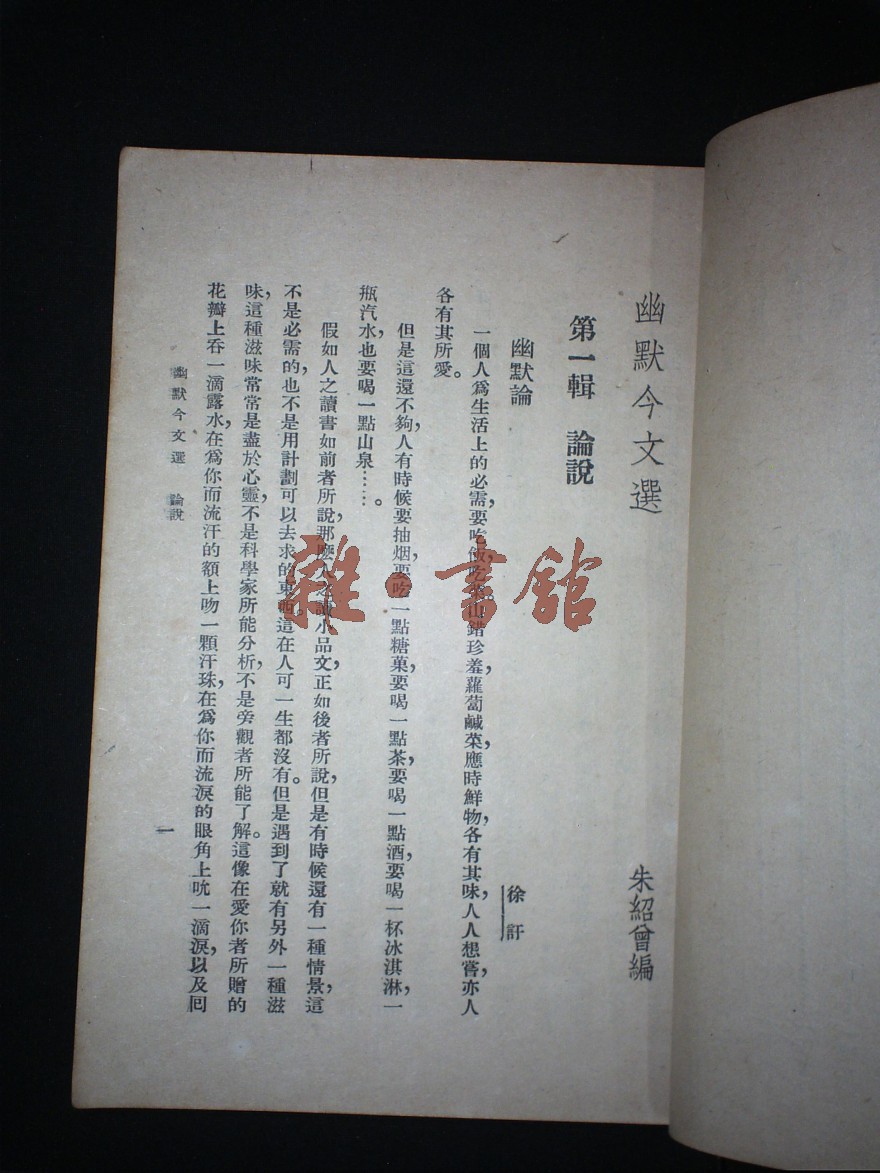 幽默今文選
朱紹曾編
第一輯　論說
幽默論
徐訏
一個人爲生活上的必需，要吃飯吃菜。山錯珍羞，蘿蔔鹹菜，應時鮮物，各有其味，人人想嘗，亦人
各有其所愛。
但是這還不夠，人有時候要抽烟，要吃一點糖菓，要喝一點茶，要喝一點酒，要喝一杯冰淇淋，一
瓶汽水也要喝一點山泉……。
假如人之讀書如前者所說，那麽人之讀小品文，正如後者所說，但是有時候還有一種情景，這
不是必需的，也不是用計劃可以去求的東西。這在人可一生都沒有。但是遇到了就有另外一種滋
味，這種滋味常常是盡於心靈，不是科學家所能分析，不是旁觀者所能了解。這像在愛你者所贈的
花瓣上吞一滴露水，在爲你而流汗的額上吻一顆汗珠，在爲你而流淚的眼角上吮一滴淚，以及囘
幽默今文選　論說
一
雜·書館